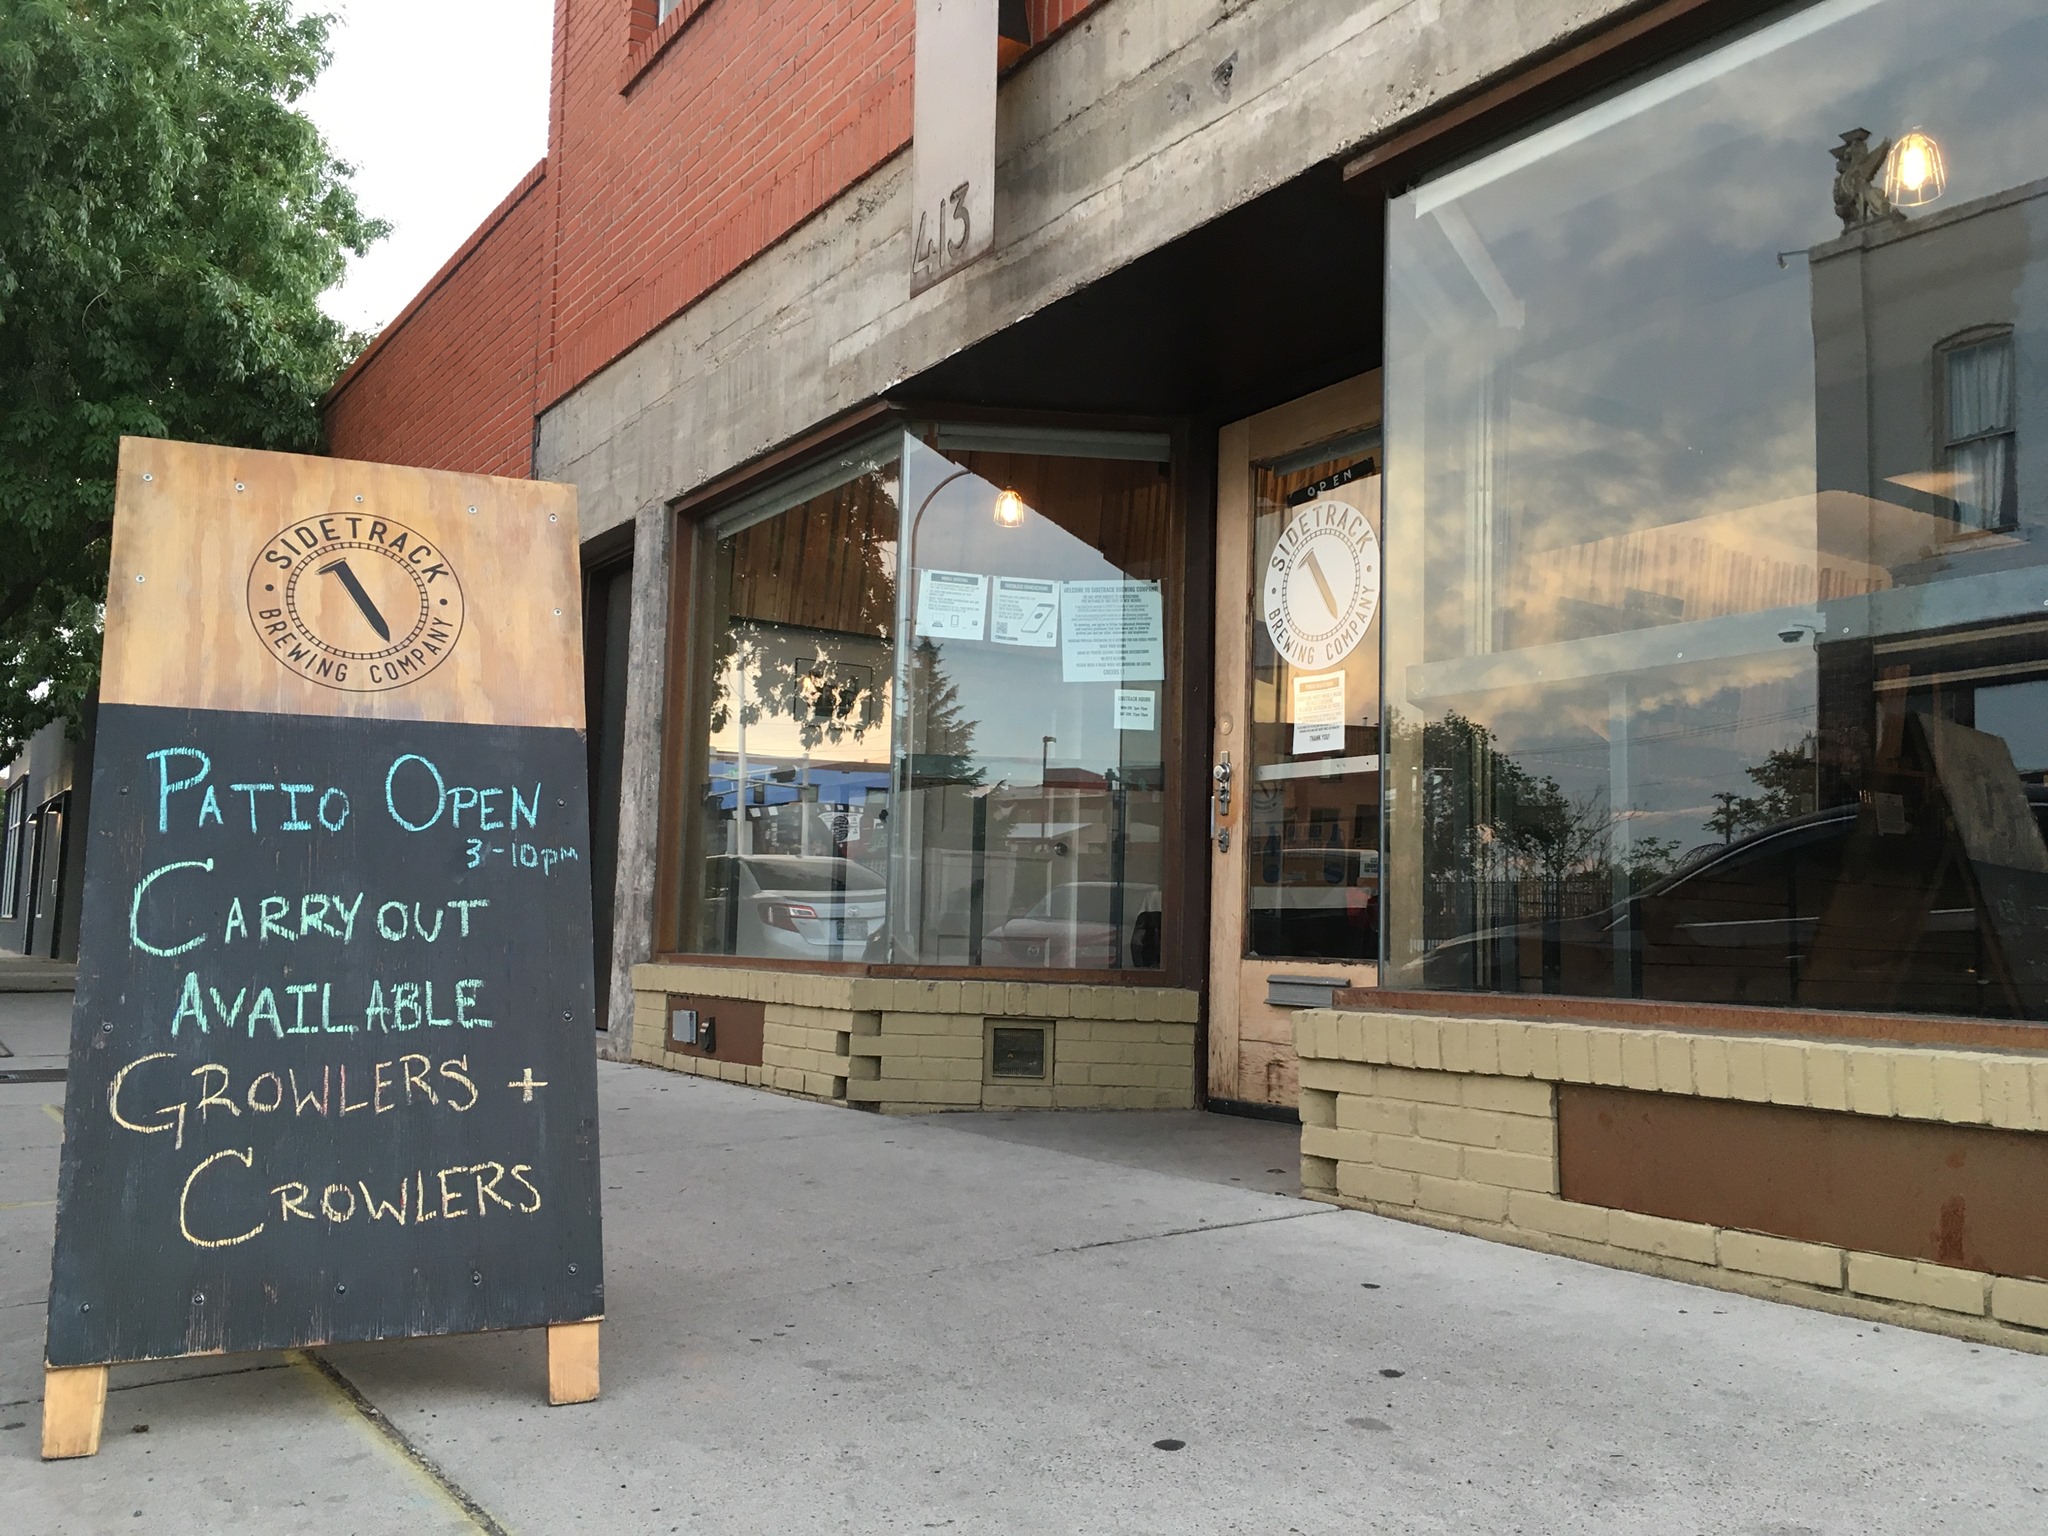 SIDETRACK
BREWING COMPANY
PATIO OPEN
3-10pm
CARRY OUT
AVAILABLE
GROWLERS +
CROWLERS
413
OPEN
SIDETRACK
BREWING COMPANY
THANK YOU!
WELCOME TO SIDETRACK BREWING COMPANY
CHEERS
SIDETRACK HOURS